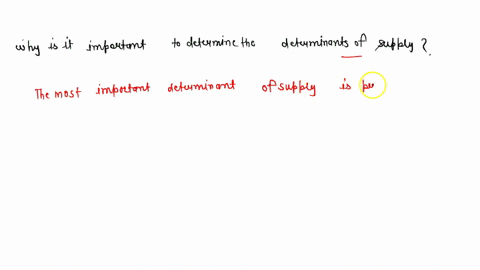 why is it important to determine the determinants of supply ?.
The most important determinant of supply is